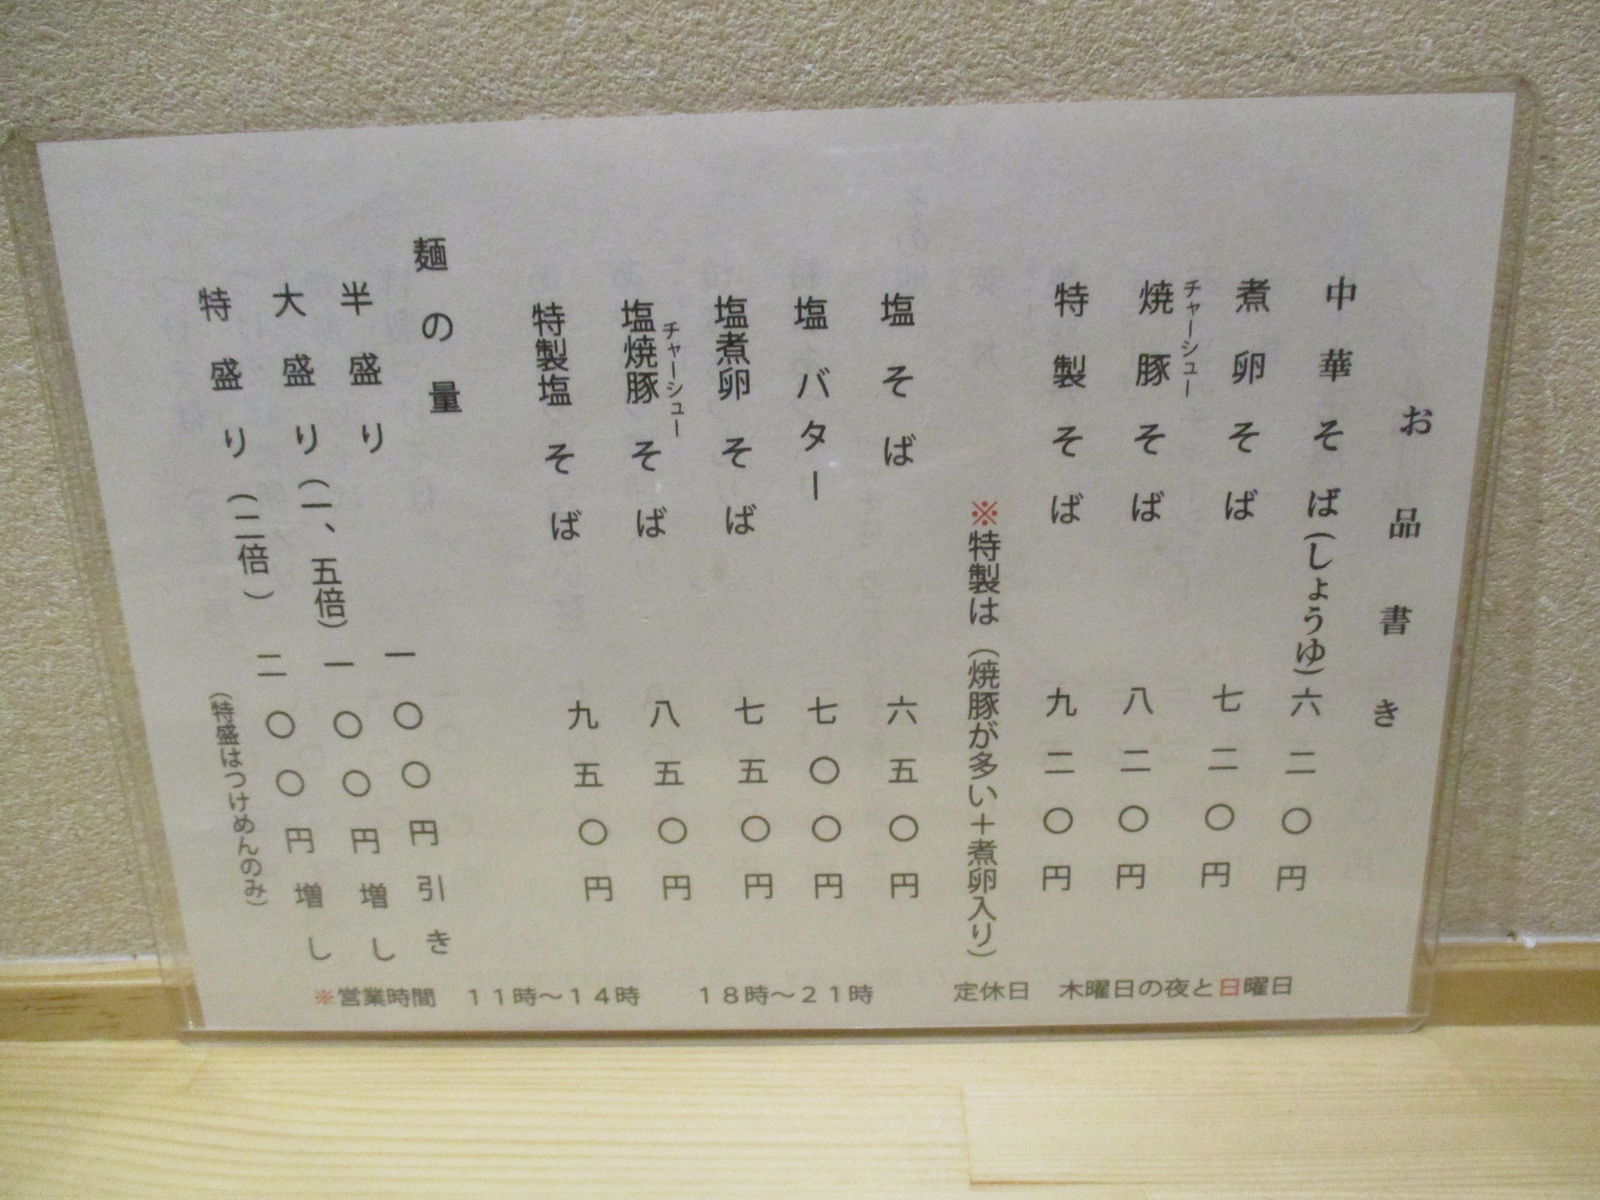 お品書き
中華そば(しょうゆ) 六二〇円
煮卵そば 七二〇円
チャーシュー
焼豚そば 八二〇円
特製そば 九二〇円
※特製は(焼豚が多い+煮卵入り)
塩そば 六五〇円
塩バター 七〇〇円
塩煮卵そば 七五〇円
チャーシュー
塩焼豚そば 八五〇円
特製塩そば 九五〇円
麺の量
半盛り 一〇〇円引き
大盛り(一、五倍) 一〇〇円増し
特盛り(二倍) 二〇〇円増し
(特盛はつけめんのみ)
※営業時間 11時～14時 18時～21時 定休日 木曜日の夜と日曜日